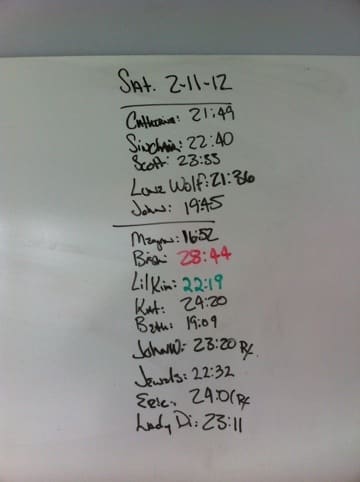 Sat. 2-11-12
Catherine: 21:49
Sinclair: 22:40
Scott: 23:55
Lone Wolf: 21:36
John: 19:45
Megan: 16:52
Brian: 28:44
Lil Kim: 22:19
Kat: 24:20
Beth: 19:09
John W: 23:20 Rx
Jewels: 22:32
Eric: 24:01 Rx
Lady Di: 23:11